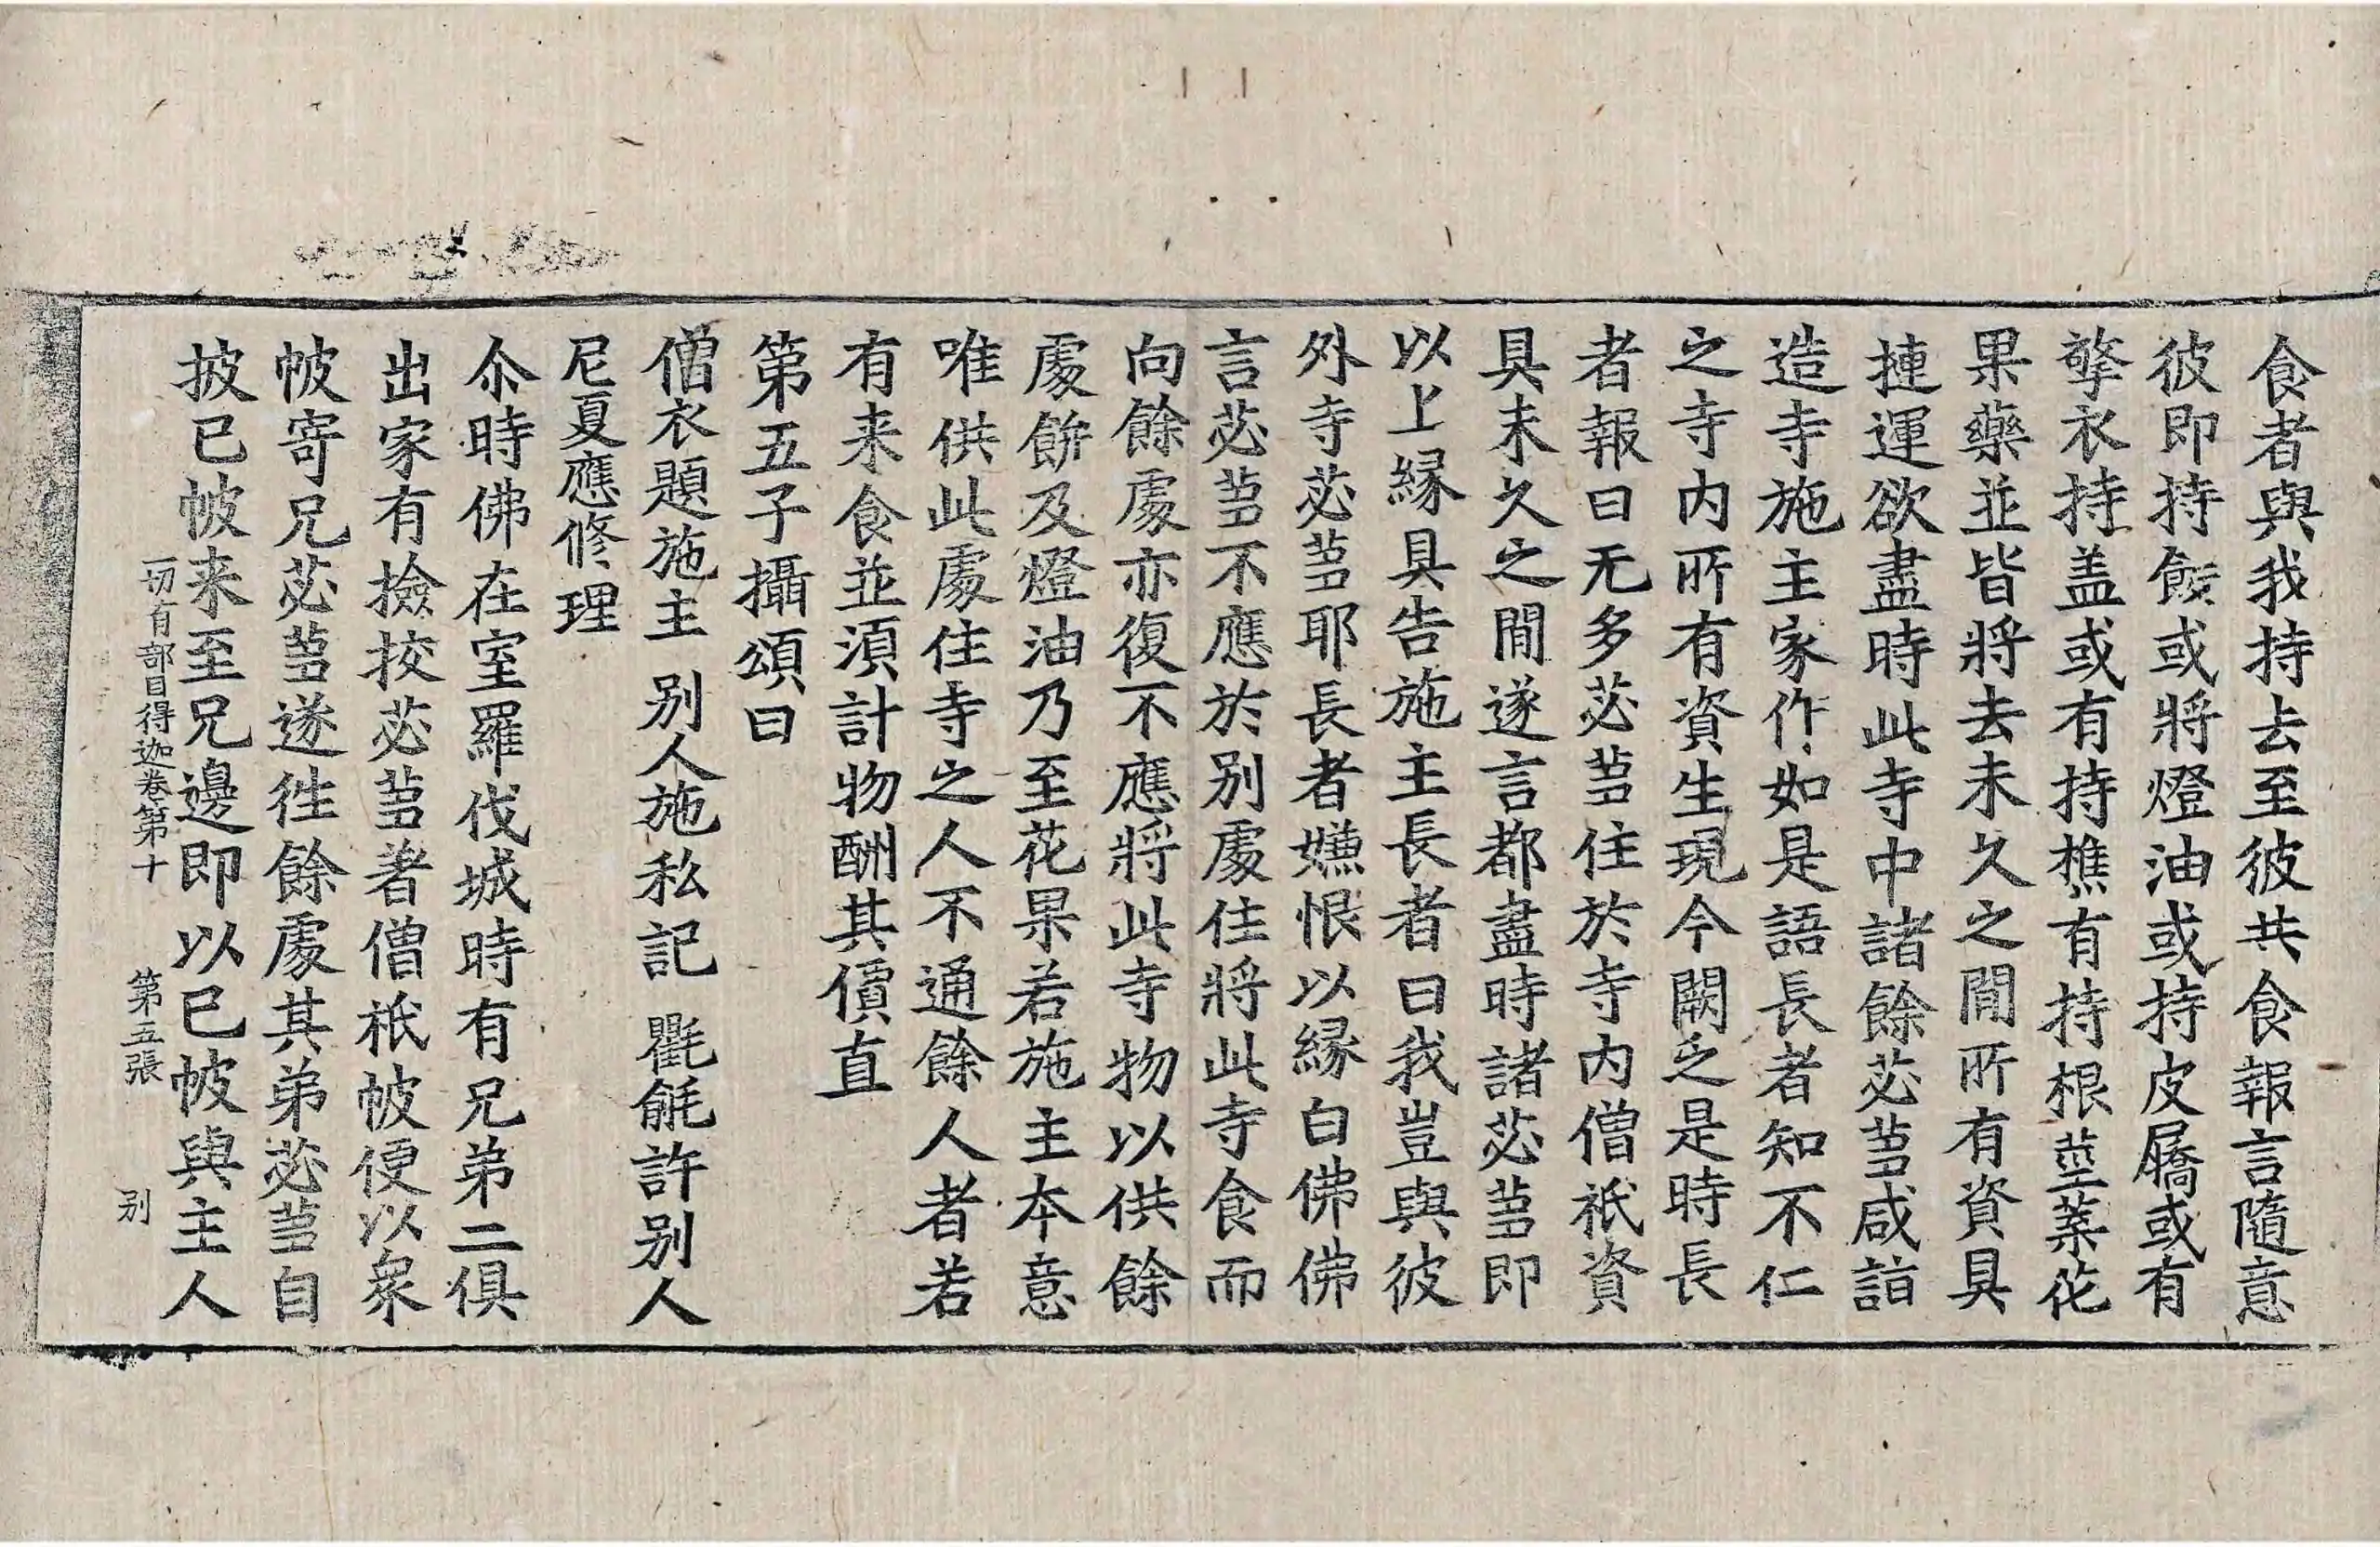 食者與我持去至彼共食報言隨意
彼即持餘或將燈油或持皮屩或有
擎衣持盖或有持樵有持根莖葉花
果藥並皆將去未久之間所有資具
摙運欲盡時此寺中諸餘苾芻咸詣
造寺施主家作如是語長者知不仁
之寺内所有資生現今闕乏是時長
者報曰无多苾芻住於寺内僧祇資
具未久之間遂言都盡時諸苾芻即
以上緣具告施主長者曰我豈與彼
外寺苾芻耶長者嫌恨以緣白佛佛
言苾芻不應於別處住將此寺食而
向餘處亦復不應將此寺物以供餘
處餅及燈油乃至花果若施主本意
唯供此處住寺之人不通餘人者若
有来食並須計物酬其價直
第五子攝頌曰
僧衣題施主　別人施私記　氍毹許別人
尼夏應修理
尒時佛在室羅伐城時有兄弟二俱
出家有撿挍苾芻著僧祇帔便以衆
帔寄兄苾芻遂徃餘處其弟苾芻自
披已帔来至兄邊即以已帔與主人
一切有部目得迦卷第十　第五張　別